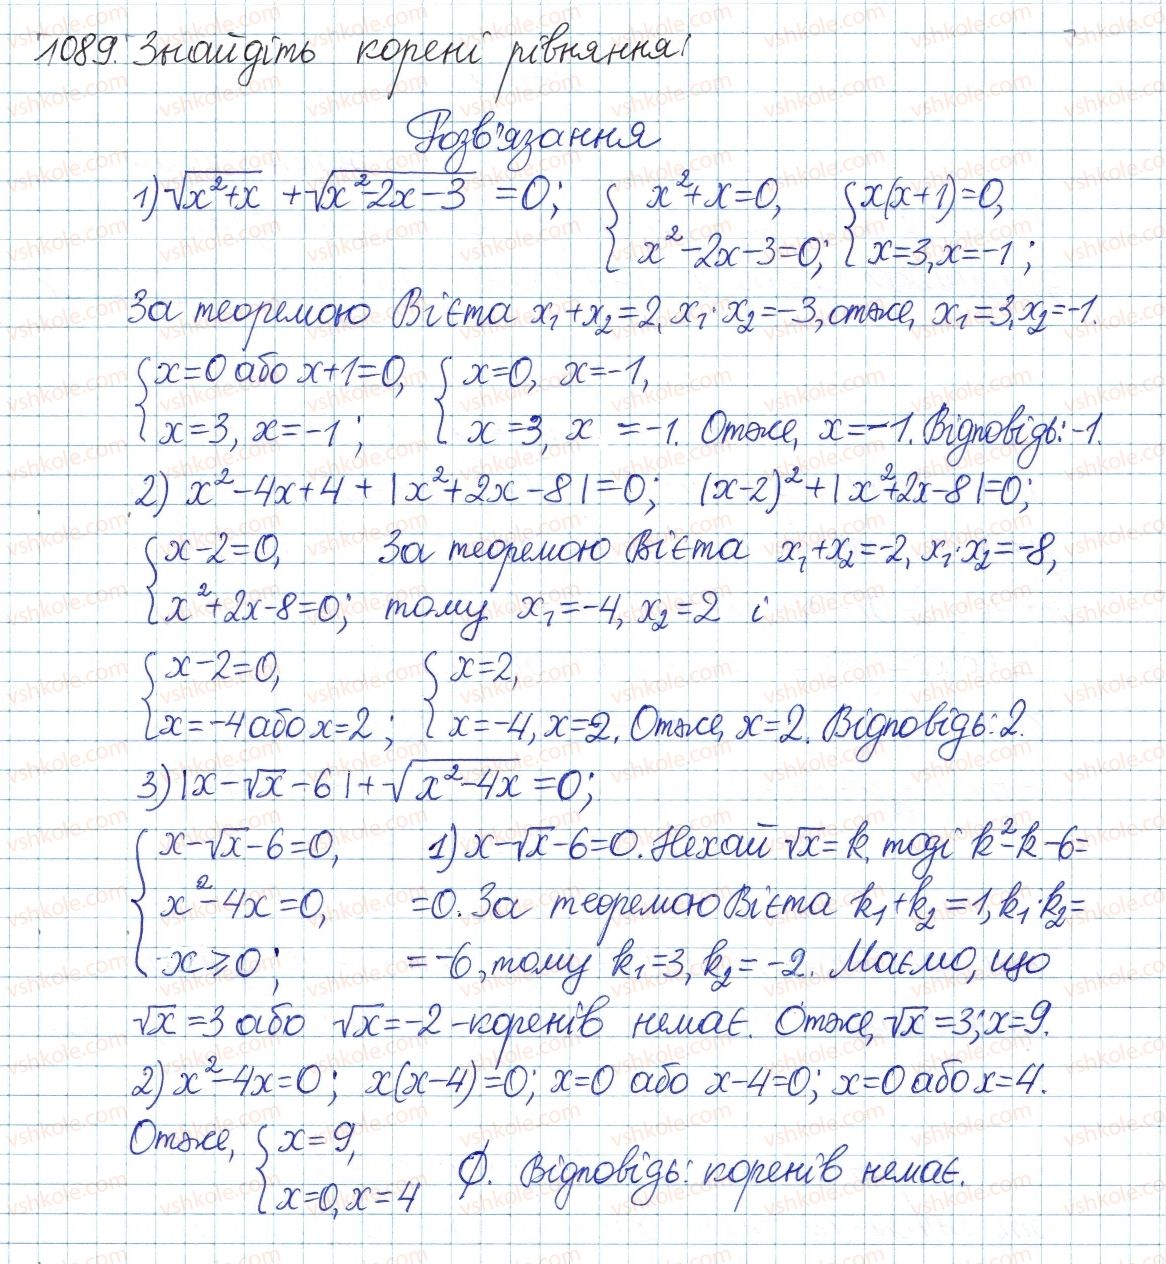 1089. Знайдіть корені рівняння:
Розв'язання
1) √(x²+x) + √(x²-2x-3) = 0; { x²+x=0, x²-2x-3=0; { x(x+1)=0, x=3, x=-1;
За теоремою Вієта x₁+x₂=2, x₁·x₂=-3, отже, x₁=3, x₂=-1.
{ x=0 або x+1=0, x=3, x=-1; { x=0, x=-1, x=3, x=-1. Отже, x=-1. Відповідь: -1.
2) x²-4x+4+|x²+2x-8|=0; (x-2)²+|x²+2x-8|=0;
{ x-2=0, За теоремою Вієта x₁+x₂=-2, x₁·x₂=-8,
x²+2x-8=0; тому x₁=-4, x₂=2 і
{ x-2=0, x=-4 або x=2; { x=2, x=-4, x=2. Отже, x=2. Відповідь: 2.
3) |x-√x-6|+√(x²-4x)=0;
{ x-√x-6=0, 1) x-√x-6=0. Нехай √x=k, тоді k²-k-6=
x²-4x=0, =0. За теоремою Вієта k₁+k₂=1, k₁·k₂=
x≥0; =-6, тому k₁=3, k₂=-2. Маємо, що
√x=3 або √x=-2 - коренів немає. Отже, √x=3; x=9.
2) x²-4x=0; x(x-4)=0; x=0 або x-4=0; x=0 або x=4.
Отже, { x=9, x=0, x=4 ∅. Відповідь: коренів немає.